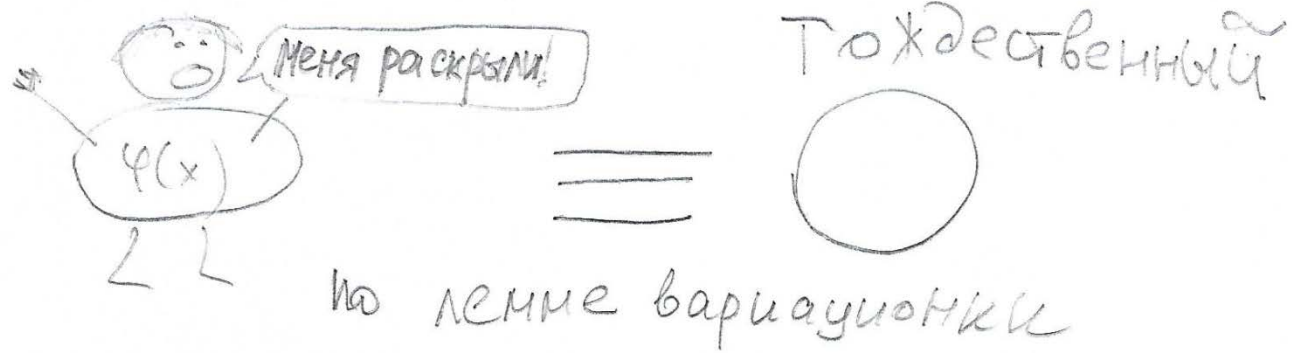 Меня раскрыли!
Тождественный
φ(x)
≡
по лемме вариационки